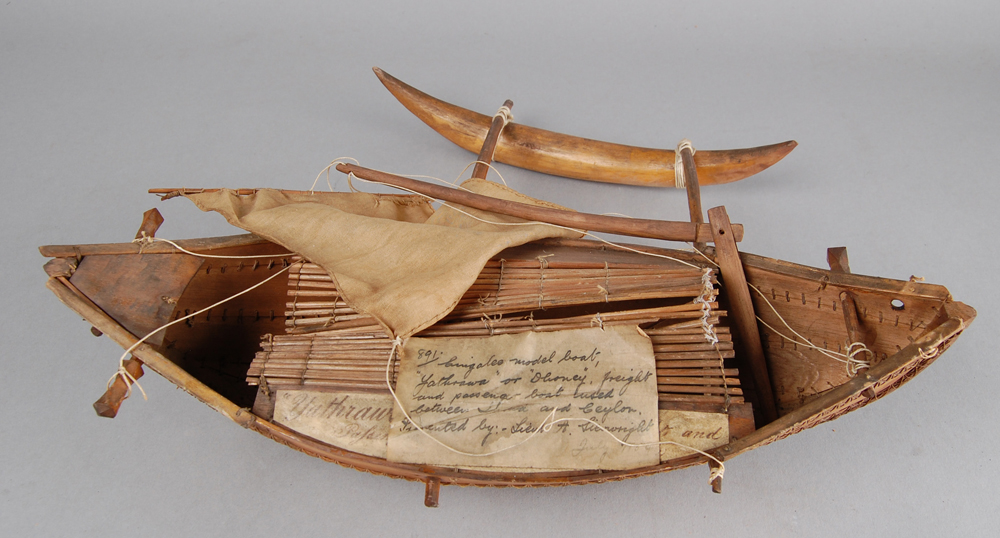 891.
Singalee model boat,
Yathrawa or Dhoney, freight
and passenger boat used
between India and Ceylon.
Presented by:- Lieut A.
"Yathraw
and